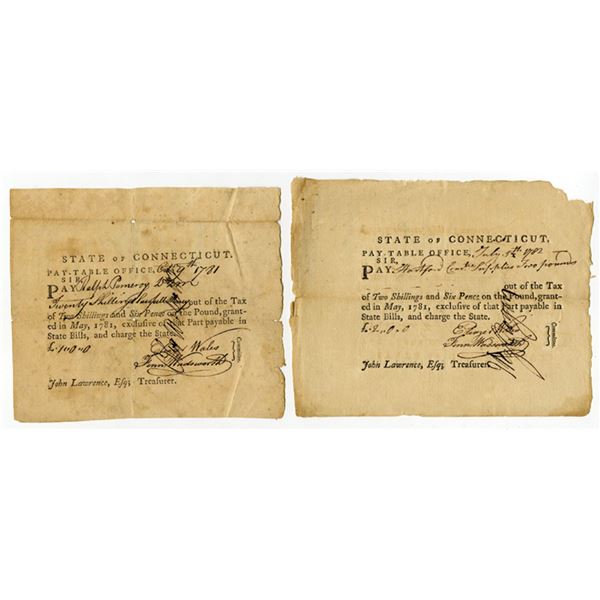 STATE OF CONNECTICUT.
PAY-TABLE OFFICE, 9th 1781
SIR,
PAY Ralph Pomeroy
Twenty Shillings out of the Tax
of Two Shillings and Six Pence on the Pound, grant-
ed in May, 1781, exclusive of that Part payable in
State Bills, and charge the State.
£1-0-0
Wales
Fenn Wadsworth
John Lawrence, Esq; Treasurer.
STATE OF CONNECTICUT,
PAY-TABLE OFFICE, July 1782
SIR,
PAY Hartford Two pounds
out of the Tax
of Two Shillings and Six Pence on the Pound, grant-
ed in May, 1781, exclusive of that Part payable in
State Bills, and charge the State.
£2-0-0
Fenn Wadsworth
John Lawrence, Esq; Treasurer.